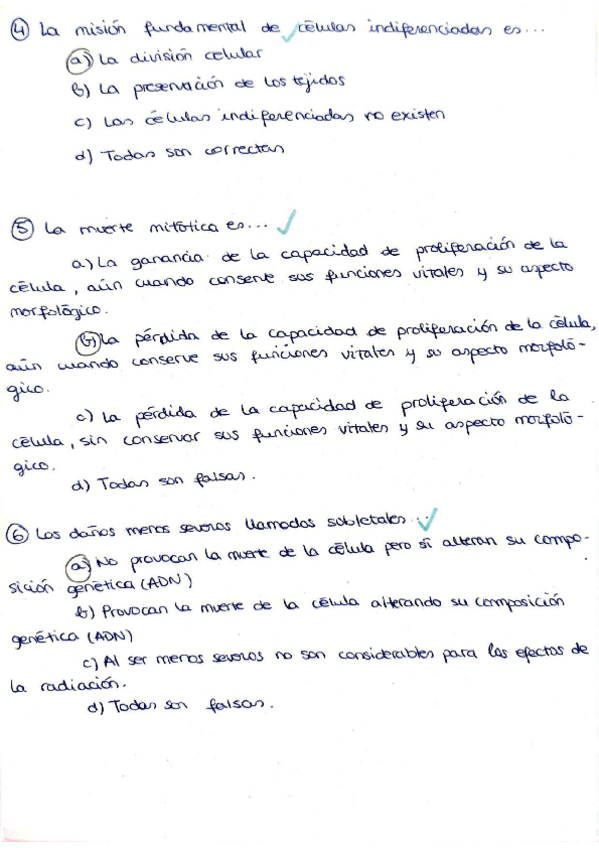 ④ La misión fundamental de células indiferenciadas es...
a) La división celular
b) La preservación de los tejidos
c) Las células indiferenciadas no existen
d) Todas son correctas
⑤ La muerte mitótica es...
a) La ganancia de la capacidad de proliferación de la
célula, aún cuando conserve sus funciones vitales y su aspecto
morfológico.
b) La pérdida de la capacidad de proliferación de la célula,
aún cuando conserve sus funciones vitales y su aspecto morfoló-
gico.
c) La pérdida de la capacidad de proliferación de la
célula, sin conservar sus funciones vitales y su aspecto morfoló-
gico.
d) Todas son falsas.
⑥ Los daños menos severos llamados subletales...
a) No provocan la muerte de la célula pero sí alteran su compo-
sición genética (ADN)
b) Provocan la muerte de la célula alterando su composición
genética (ADN)
c) Al ser menos severos no son considerables para los efectos de
la radiación.
d) Todas son falsas.